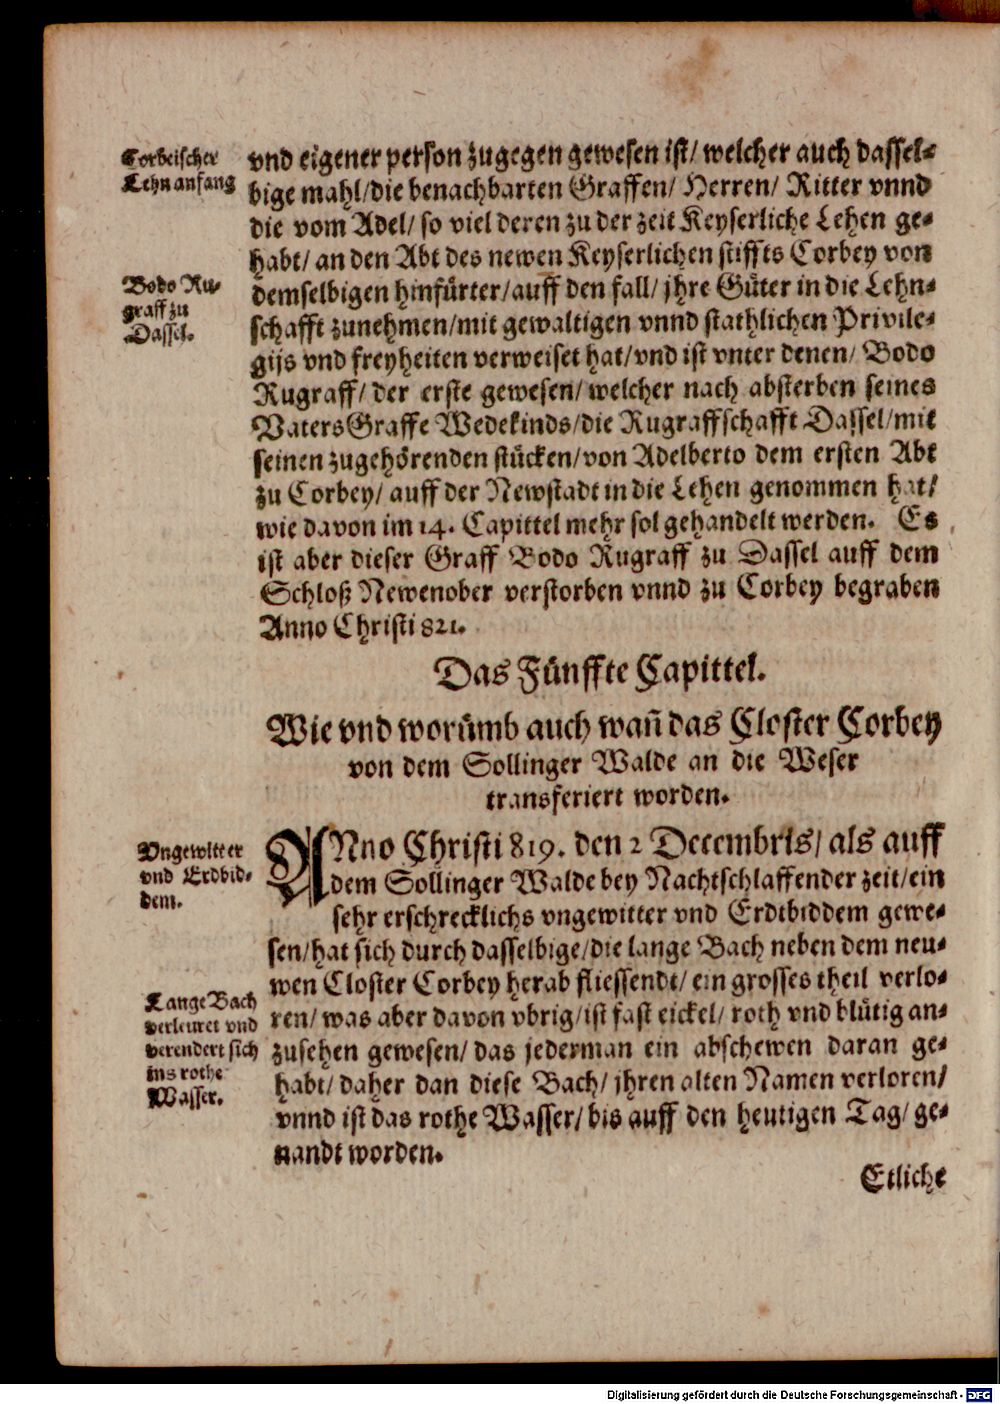 Corbeischer
Lehn anfang
vnd eigener person zugegen gewesen ist/ welcher auch dassel-
bige mahl/die benachbarten Graffen/ Herren/ Ritter vnnd
die vom Adel/ so viel deren zu der zeit Keyserliche Lehen ge-
habt/ an den Abt des newen Keyserlichen stiffts Corbey von
Bodo Ru-
graff zu
Dassel.
demselbigen hinfürter/auff den fall/ jhre Güter in die Lehn-
schafft zunehmen/mit gewaltigen vnnd stathlichen Privile-
gijs vnd freyheiten verweiset hat/vnd ist vnter denen/ Bodo
Rugraff/ der erste gewesen/ welcher nach absterben seines
Vaters Graffe Wedekinds/die Rugraffschafft Dassel/mit
seinen zugehörenden stücken/von Adelberto dem ersten Abt
zu Corbey/ auff der Newstadt in die Lehen genommen hat/
wie davon im 14. Capittel mehr sol gehandelt werden. Es
ist aber dieser Graff Bodo Rugraff zu Dassel auff dem
Schloß Newenober verstorben vnnd zu Corbey begraben
Anno Christi 821.
Das Fünffte Capittel.
Wie vnd worümb auch wañ das Closter Corbey
von dem Sollinger Walde an die Weser
transferiert worden.
Vngewitter
vnd Erdbid-
dem.
ANno Christi 819. den 2 Decembris/ als auff
dem Sollinger Walde bey Nachtschlaffender zeit/ein
sehr erschrecklichs vngewitter vnd Erdtbiddem gewe-
sen/hat sich durch dasselbige/die lange Bach neben dem neu-
wen Closter Corbey herab fliessendt/ ein grosses theil verlo-
Lange Bach
verleuret vnd
verendert sich
ins rothe
Wasser.
ren/ was aber davon vbrig/ist fast eickel/ roth vnd blütig an-
zusehen gewesen/ das jederman ein abschewen daran ge-
habt/ daher dan diese Bach/ jhren alten Namen verloren/
vnnd ist das rothe Wasser/ bis auff den heutigen Tag/ ge-
nandt worden.
Etliche
Digitalisierung gefördert durch die Deutsche Forschungsgemeinschaft - DFG